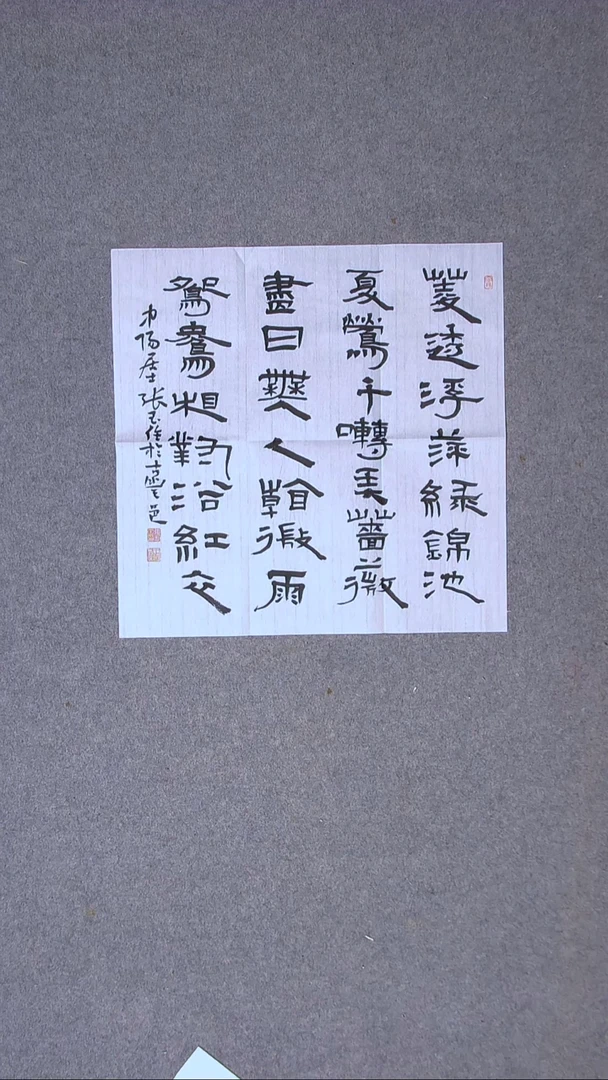 菱透浮萍綠錦池
夏鶯千囀弄薔薇
盡日無人看微雨
鴛鴦相對浴紅衣
陽居士張玉於古邑